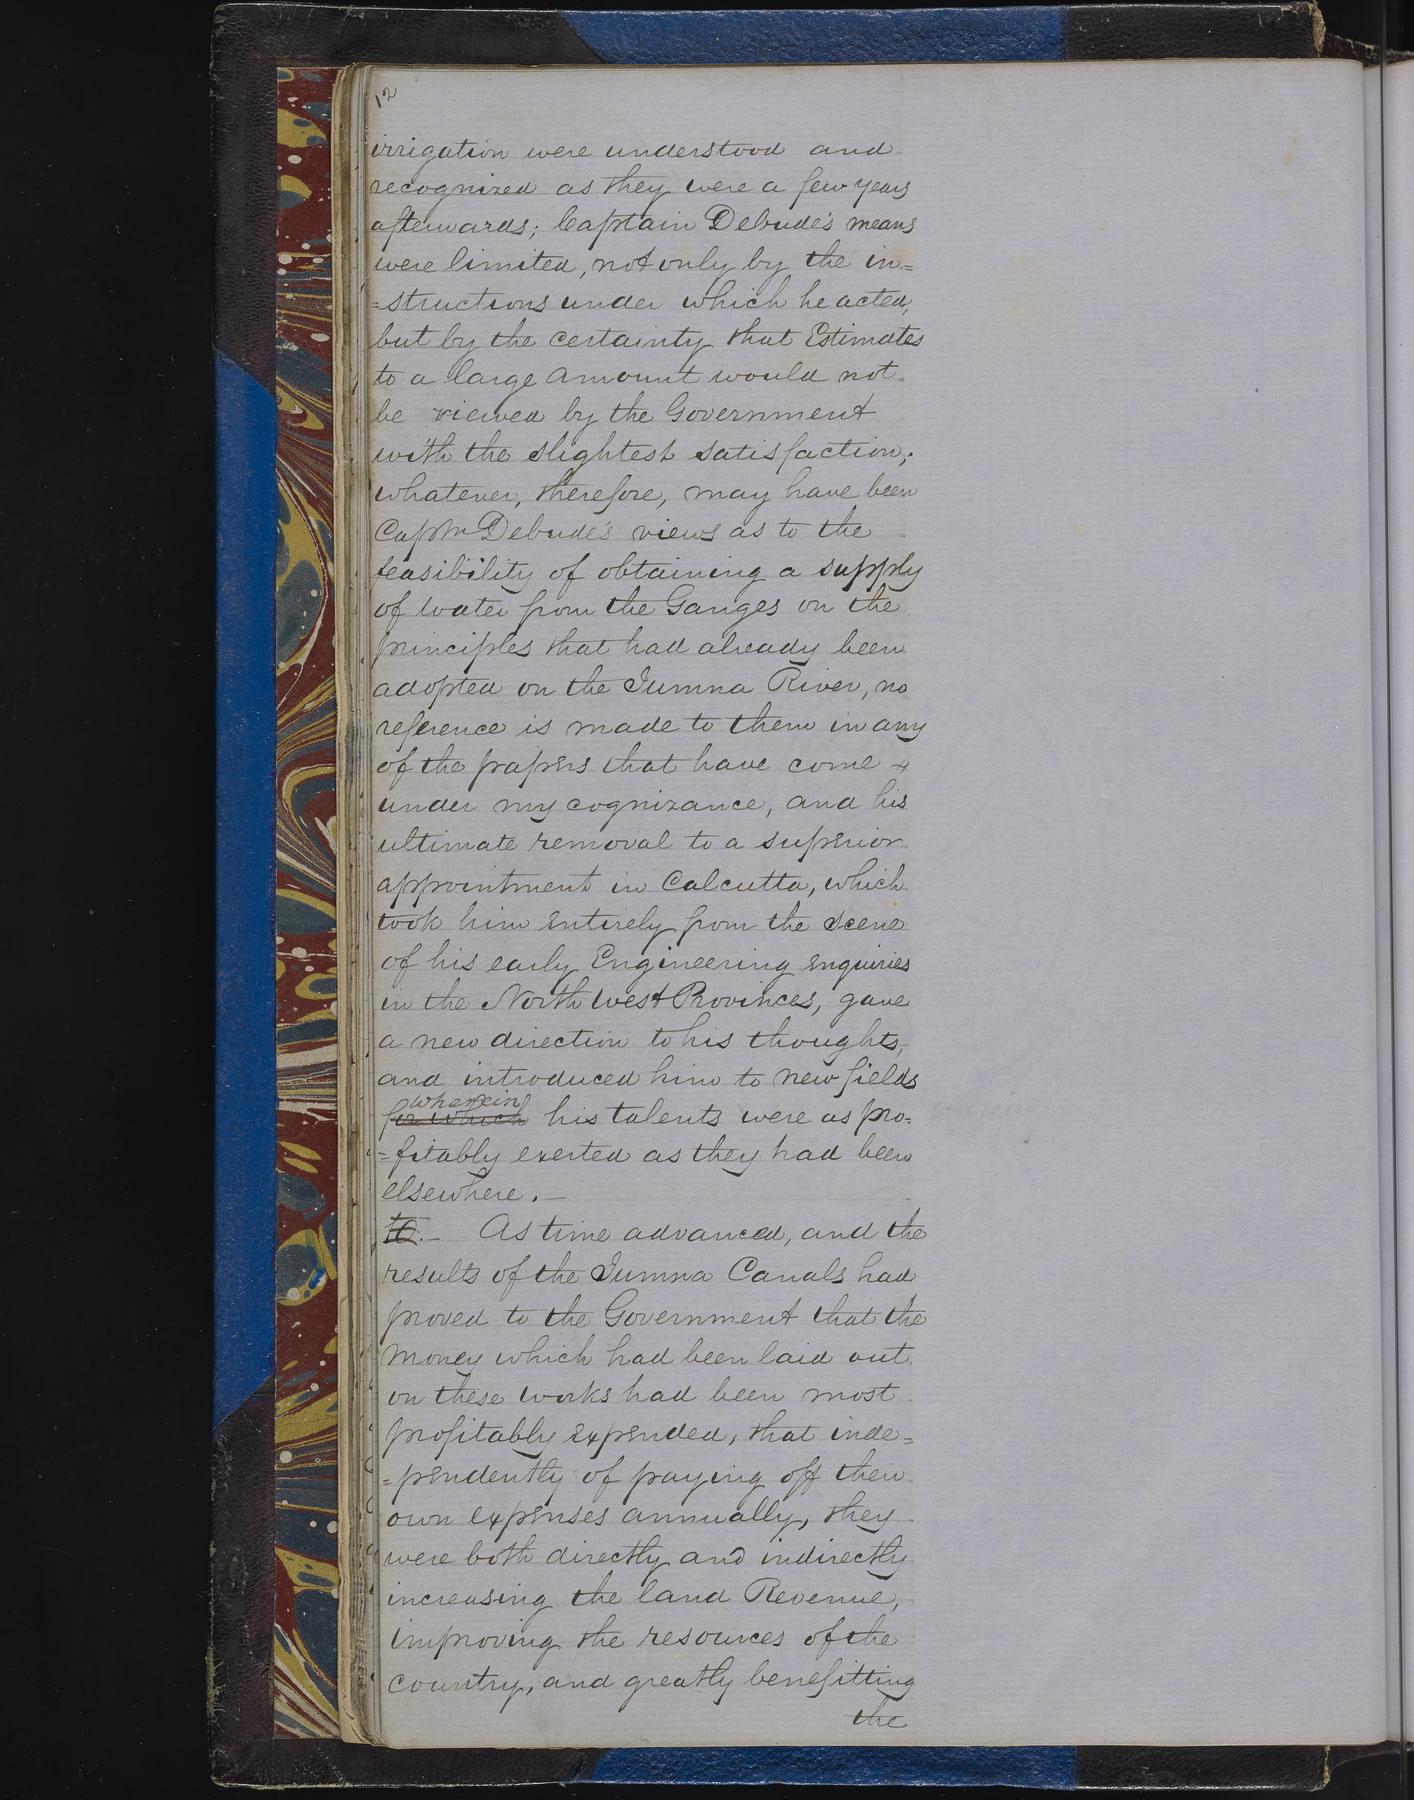 12
irrigation were understood and
recognized as they were a few years
afterwards; Captain Debude's means
were limited, not only by the in=
=structions under which he acted,
but by the certainty that Estimates
to a large amount would not
be viewed by the Government
with the slightest satisfaction;
whatever, therefore, may have been
Captn Debude's views as to the
feasibility of obtaining a supply
of water from the Ganges on the
principles that had already been
adopted on the Jumna River, no
reference is made to them in any
of the papers that have come
under my cognizance, and his
ultimate removal to a superior
appointment in Calcutta, which
took him entirely from the scene
of his early Engineering enquiries
in the North West Provinces, gave
a new direction to his thoughts,
and introduced him to new fields
wherein
for which his talents were as pro=
=fitably exerted as they had been
elsewhere.—
As time advanced, and the
results of the Jumna Canals had
proved to the Government that the
money which had been laid out
on these works had been most
profitably expended, that inde=
=pendently of paying off their
own expenses annually, they
were both directly and indirectly
increasing the land Revenue,
improving the resources of the
country, and greatly benefitting
the